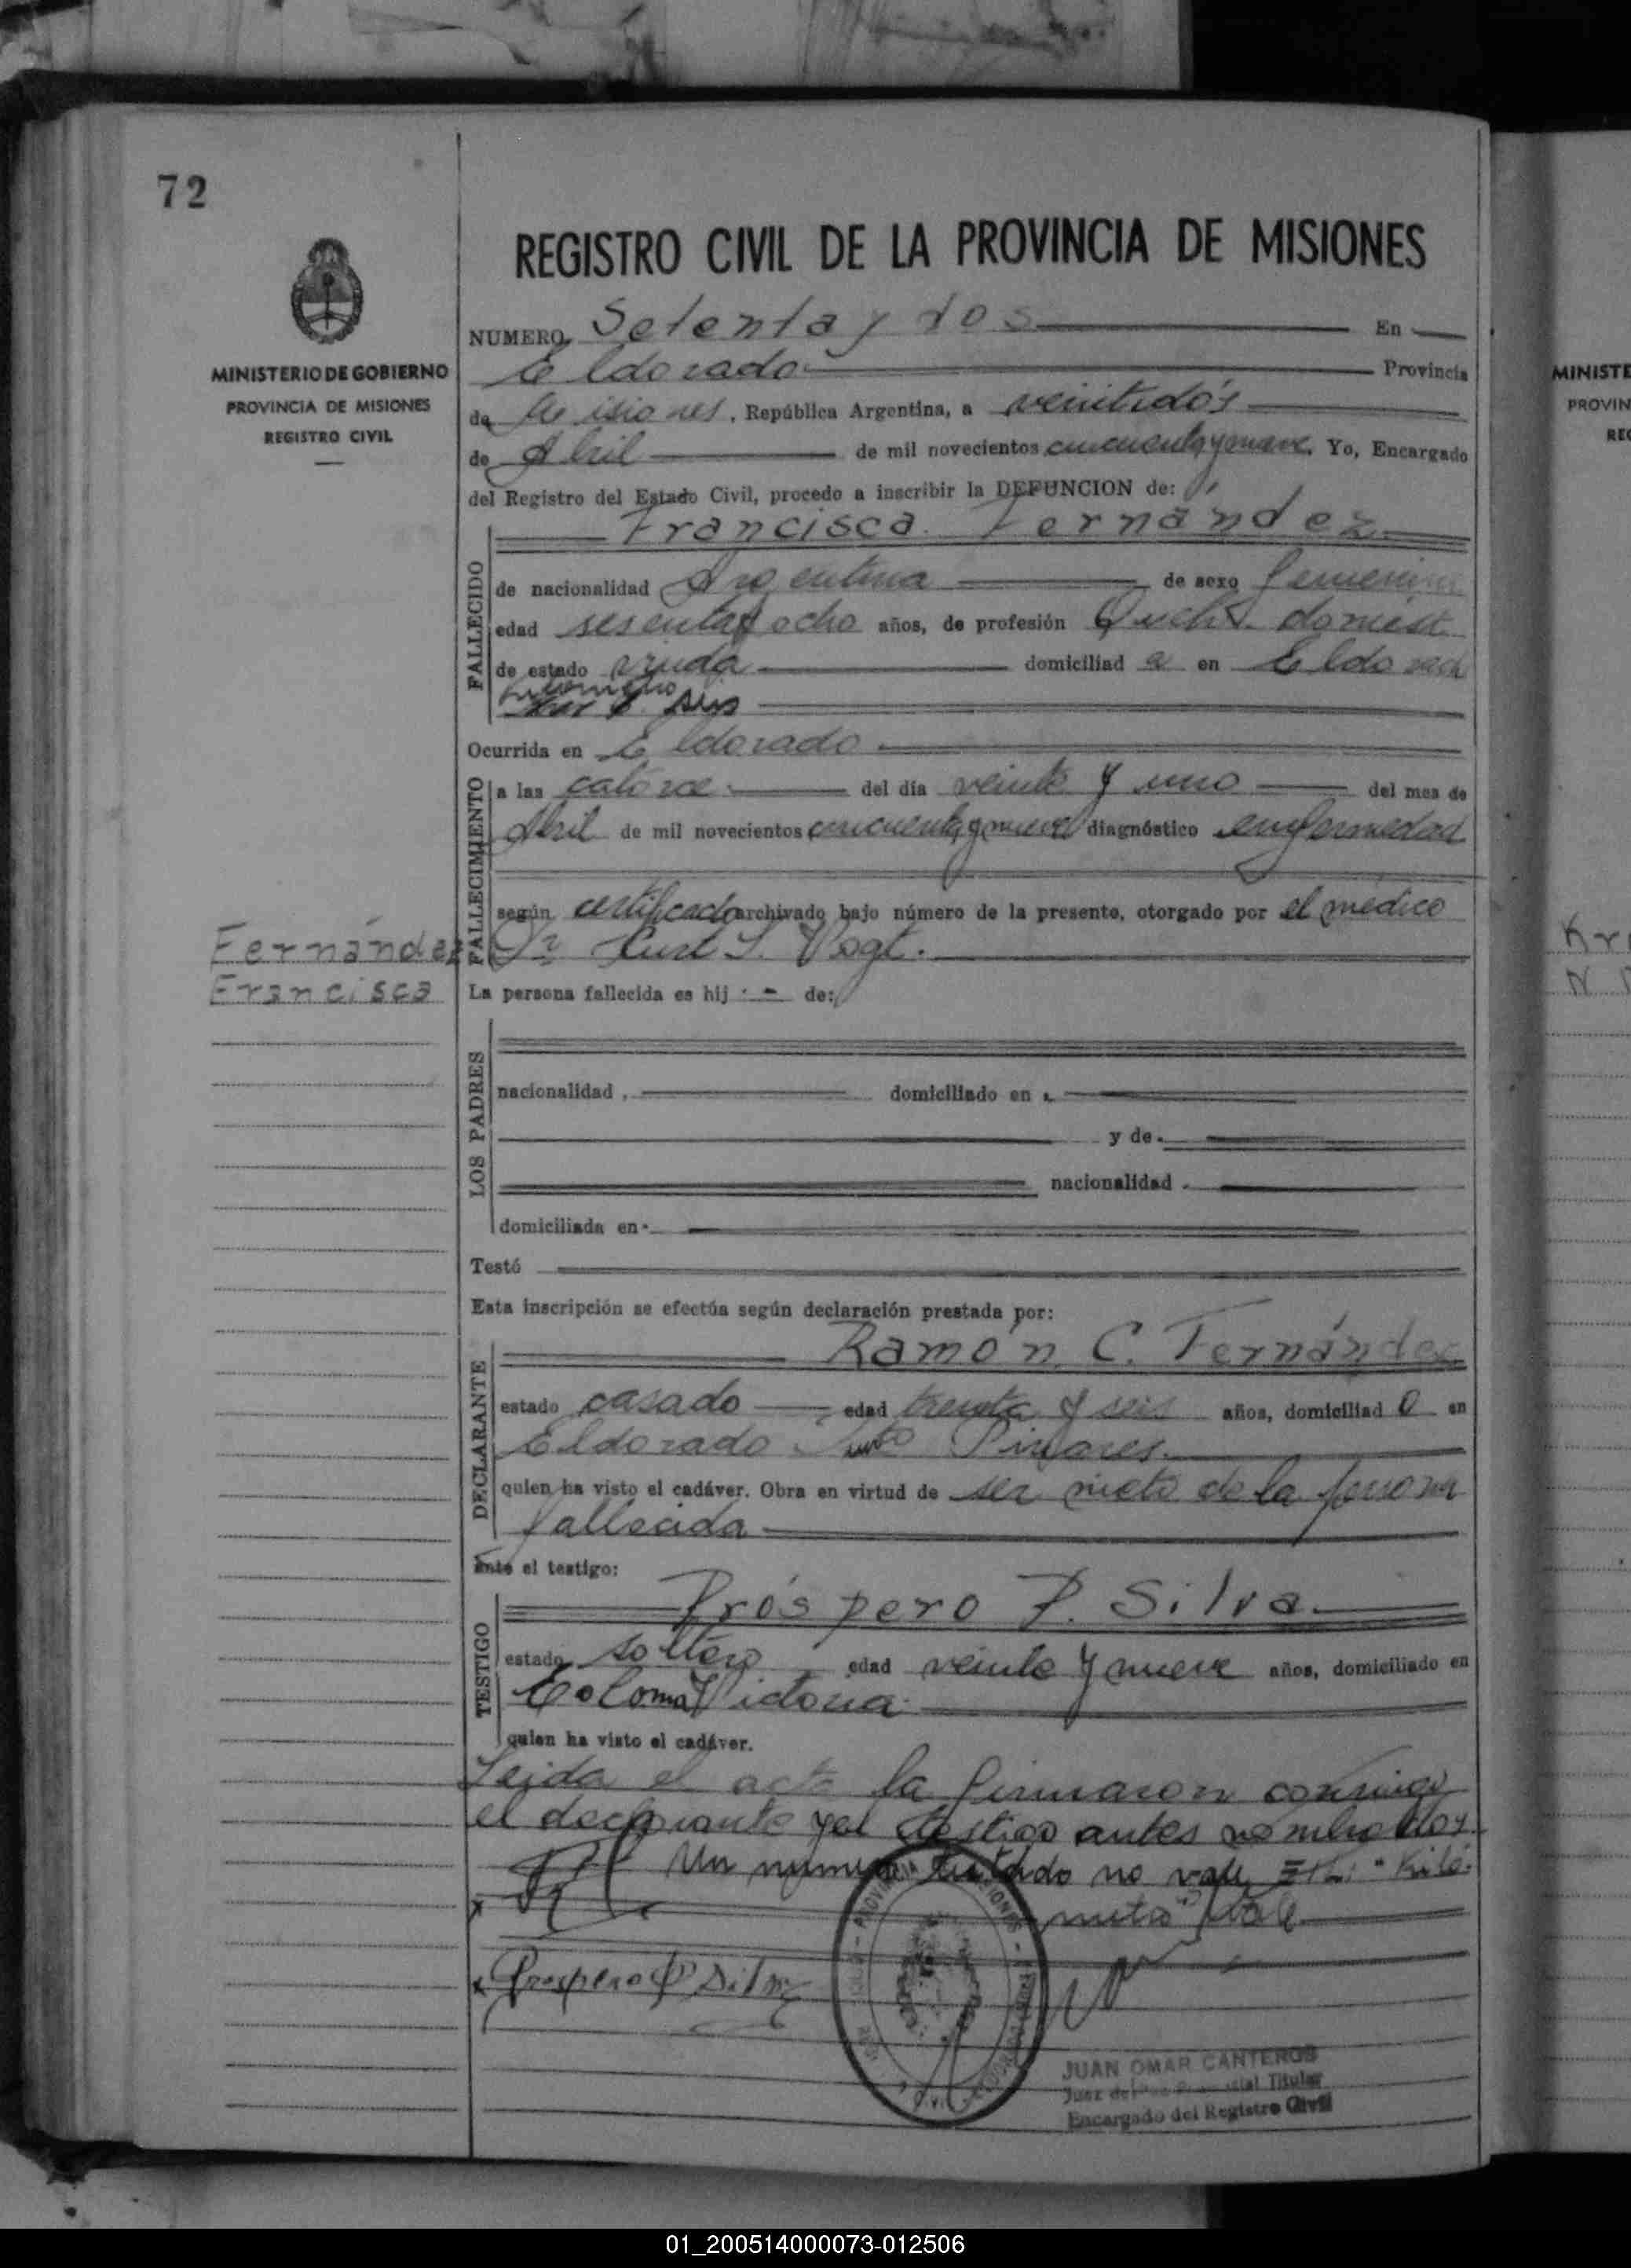 72
REGISTRO CIVIL DE LA PROVINCIA DE MISIONES
MINISTERIO DE GOBIERNO
PROVINCIA DE MISIONES
REGISTRO CIVIL
NUMERO Setenta y dos En
Eldorado Provincia
de Misiones, República Argentina, a veintidós
de Abril de mil novecientos cincuenta y nueve. Yo, Encargado
del Registro del Estado Civil, procedo a inscribir la DEFUNCION de:
Francisca Fernández
FALLECIDO
de nacionalidad Argentina de sexo femenino
edad sesenta y ocho años, de profesión Queh. domést.
de estado viuda domiciliad a en Eldorado
kilometro seis
Ocurrida en Eldorado
FALLECIMIENTO
a las catorce del día veinte y uno del mes de
Abril de mil novecientos cincuenta y nueve diagnóstico enfermedad
según certificado archivado bajo número de la presente, otorgado por el médico
Dr Kurt S. Vogt.
Fernández
Francisca
La persona fallecida es hij - de:
LOS PADRES
nacionalidad domiciliado en
y de
nacionalidad
domiciliada en
Testó
Esta inscripción se efectúa según declaración prestada por:
DECLARANTE
Ramón C. Fernández
estado casado edad treinta y seis años, domiciliad o en
Eldorado Pinares.
quien ha visto el cadáver. Obra en virtud de ser nieto de la persona
fallecida
Ante el testigo:
TESTIGO
Próspero P. Silva
estado soltero edad veinte y nueve años, domiciliado en
Colonia Victoria
quien ha visto el cadáver.
Leida el acta la firmaron conmigo
el declarante y el testigo antes nombrados.
Un numero testado no vale E/L: "Kiló-
metro" vale
x
x Prospero P Silva
JUAN OMAR CANTEROS
Juez de Paz Titular
Encargado del Registro Civil
MINISTE
PROVIN
REG
Kr
N
01_200514000073-012506